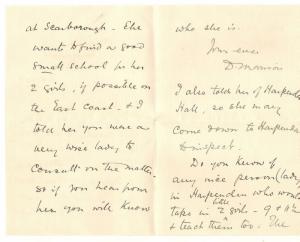 at Scarborough - She
wants to find a good
small school for her
2 girls, if possible on
the East Coast - & I
told her you were a
very wise lady to
consult on the matter.
So if you hear from
her you will know
who she is.
Yours ever
I also told her of Harpenden
Hall, so she may
come down to Harpenden
to inspect.
Do you know of
any nice person (lady)
in Harpenden who would
take in 2 little girls - 9 &
& teach them too. The